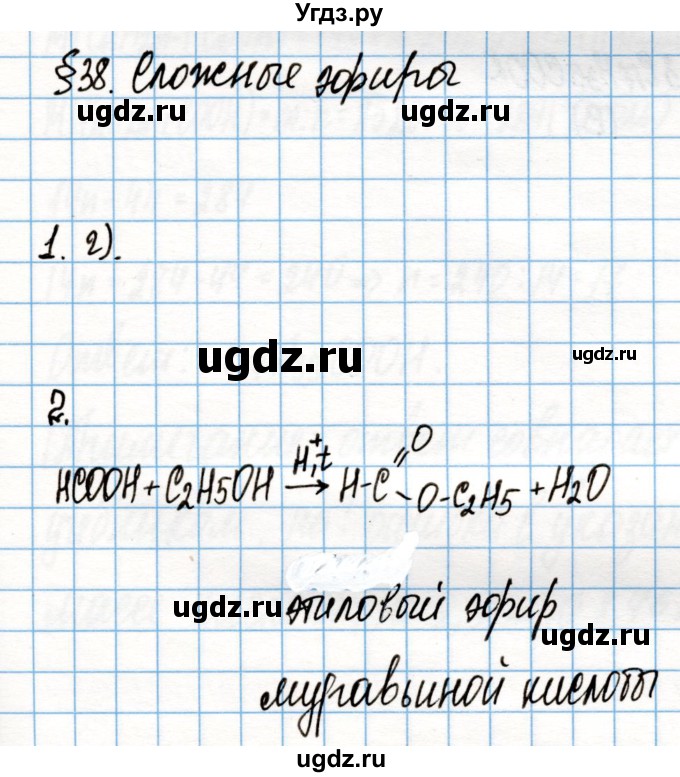 Угдз.ру
§38. Сложные эфиры
ugdz.ru ugdz.ru
1. г).
ugdz.ru ugdz.ru
2.
O
H⁺, t
HCOOH + C₂H5OH → H-C O-C₂H5 + H₂O
ugdz.ru
этиловый эфир
ugdz.ru
муравьиной кислоты
ugdz.ru